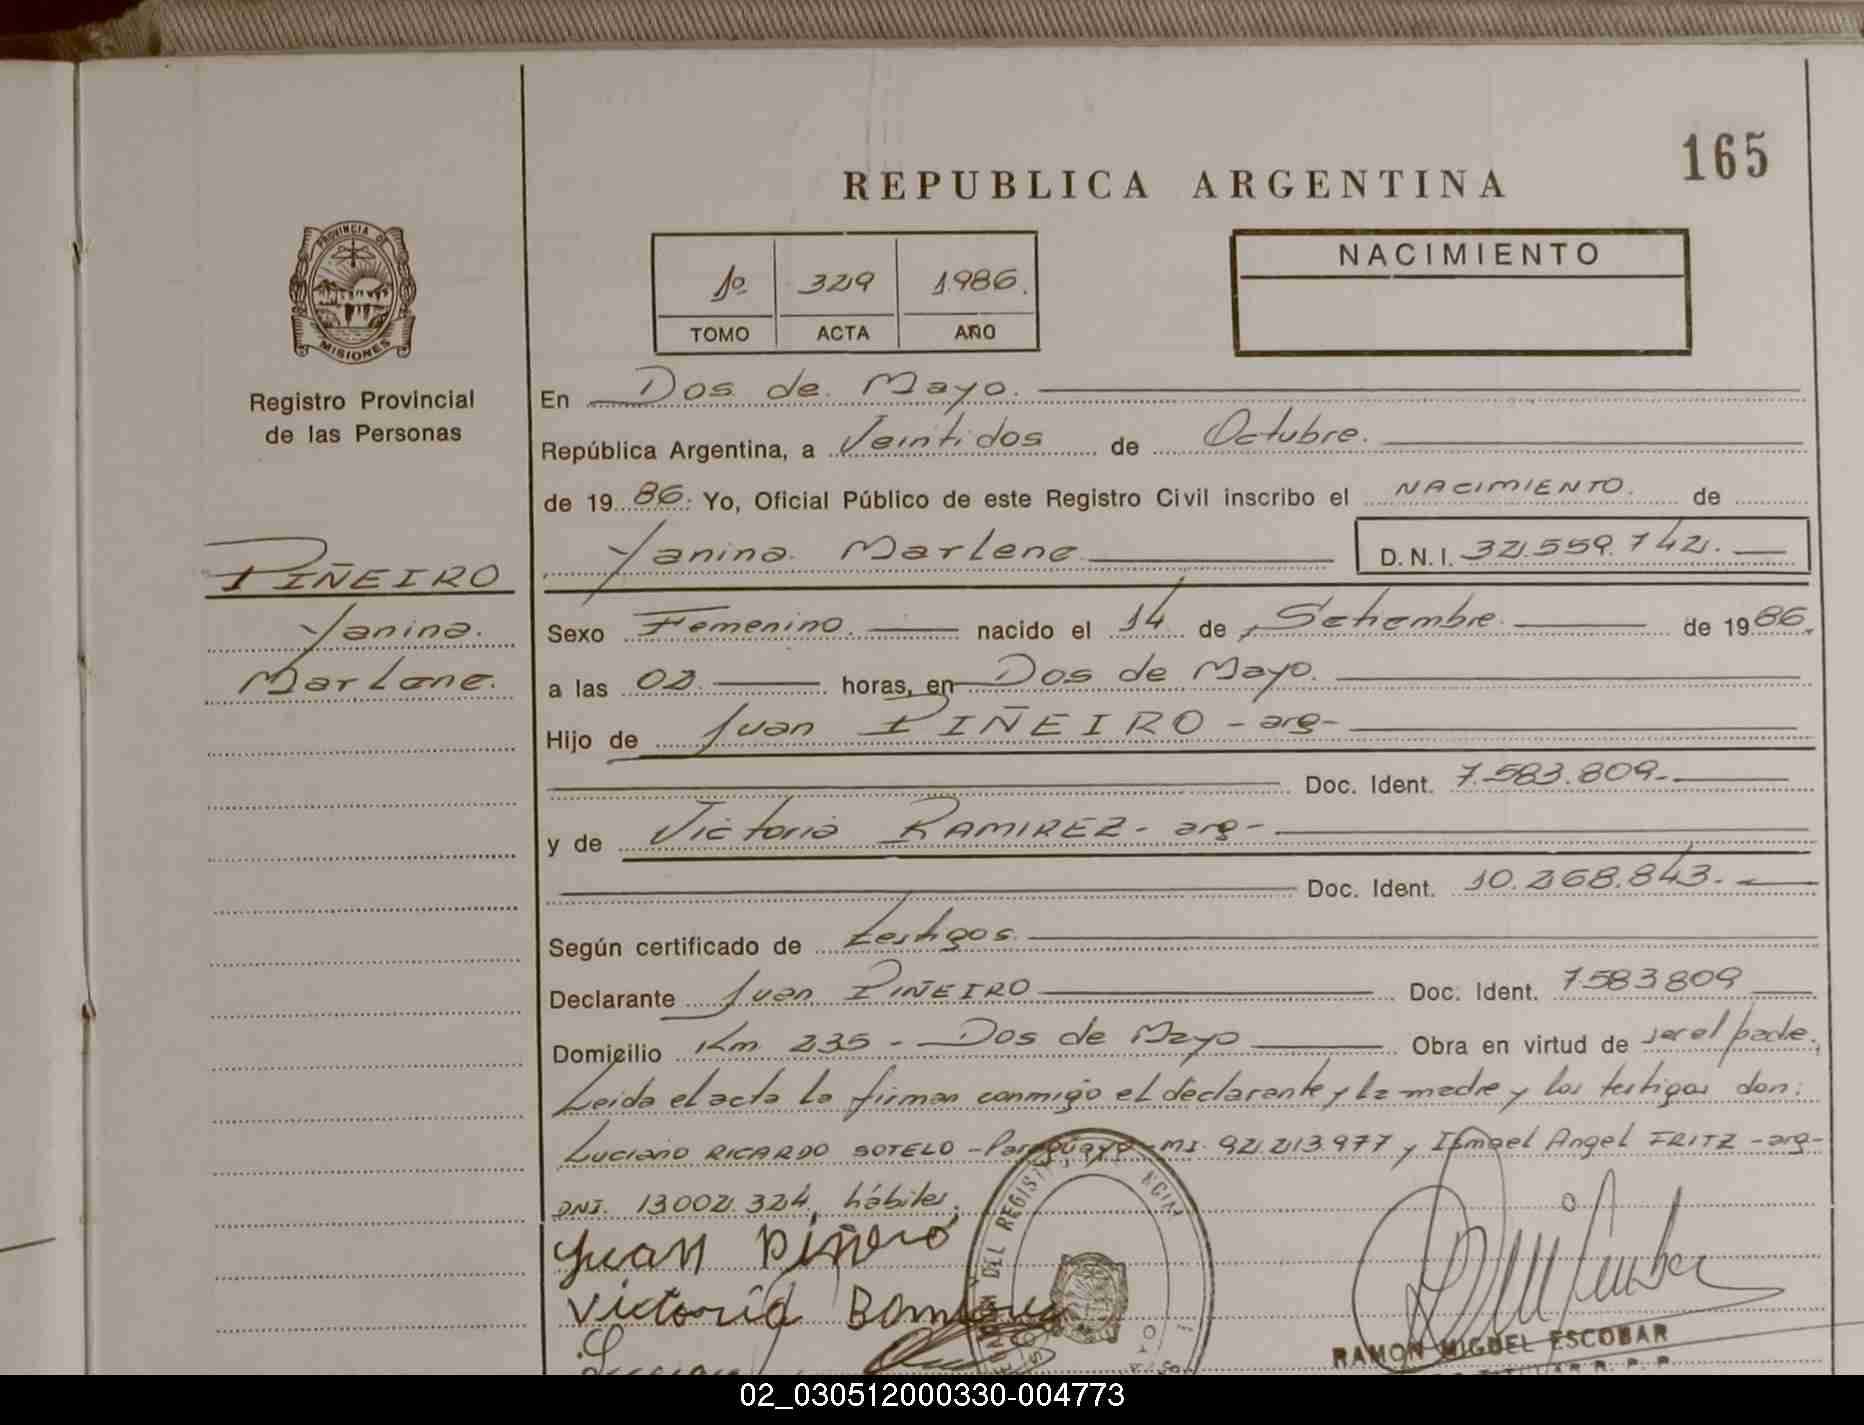 165
REPUBLICA ARGENTINA
PROVINCIA DE
MISIONES
Registro Provincial
de las Personas
1º 329 1.986.
TOMO ACTA AÑO
NACIMIENTO
En Dos de Mayo.
República Argentina, a Veintidos de Octubre.
de 19 86. Yo, Oficial Público de este Registro Civil inscribo el NACIMIENTO. de
Yanina Marlene D.N.I. 32.559.742.
PIÑEIRO
Yanina.
Marlene.
Sexo Femenino. nacido el 14 de Setiembre de 19 86.
a las 02. horas, en Dos de Mayo.
Hijo de Juan PIÑEIRO - arg-
Doc. Ident. 7.583.809-
y de Victoria RAMIREZ - arg-
Doc. Ident. 10.268.843.
Según certificado de testigos.
Declarante Juan PIÑEIRO Doc. Ident. 7583809
Domicilio Km 235 - Dos de Mayo Obra en virtud de ser el padre.
Leida el acta la firman conmigo el declarante y la madre y los testigos don:
Luciano RICARDO SOTELO - Paraguayo - MI. 92.213.977 y Ismael Angel FRITZ - arg-
DNI. 13.002.324, hábiles.
Juan Piñeiro
Victoria
DEL REGIST
RAMON MIGUEL ESCOBAR
02_030512000330-004773